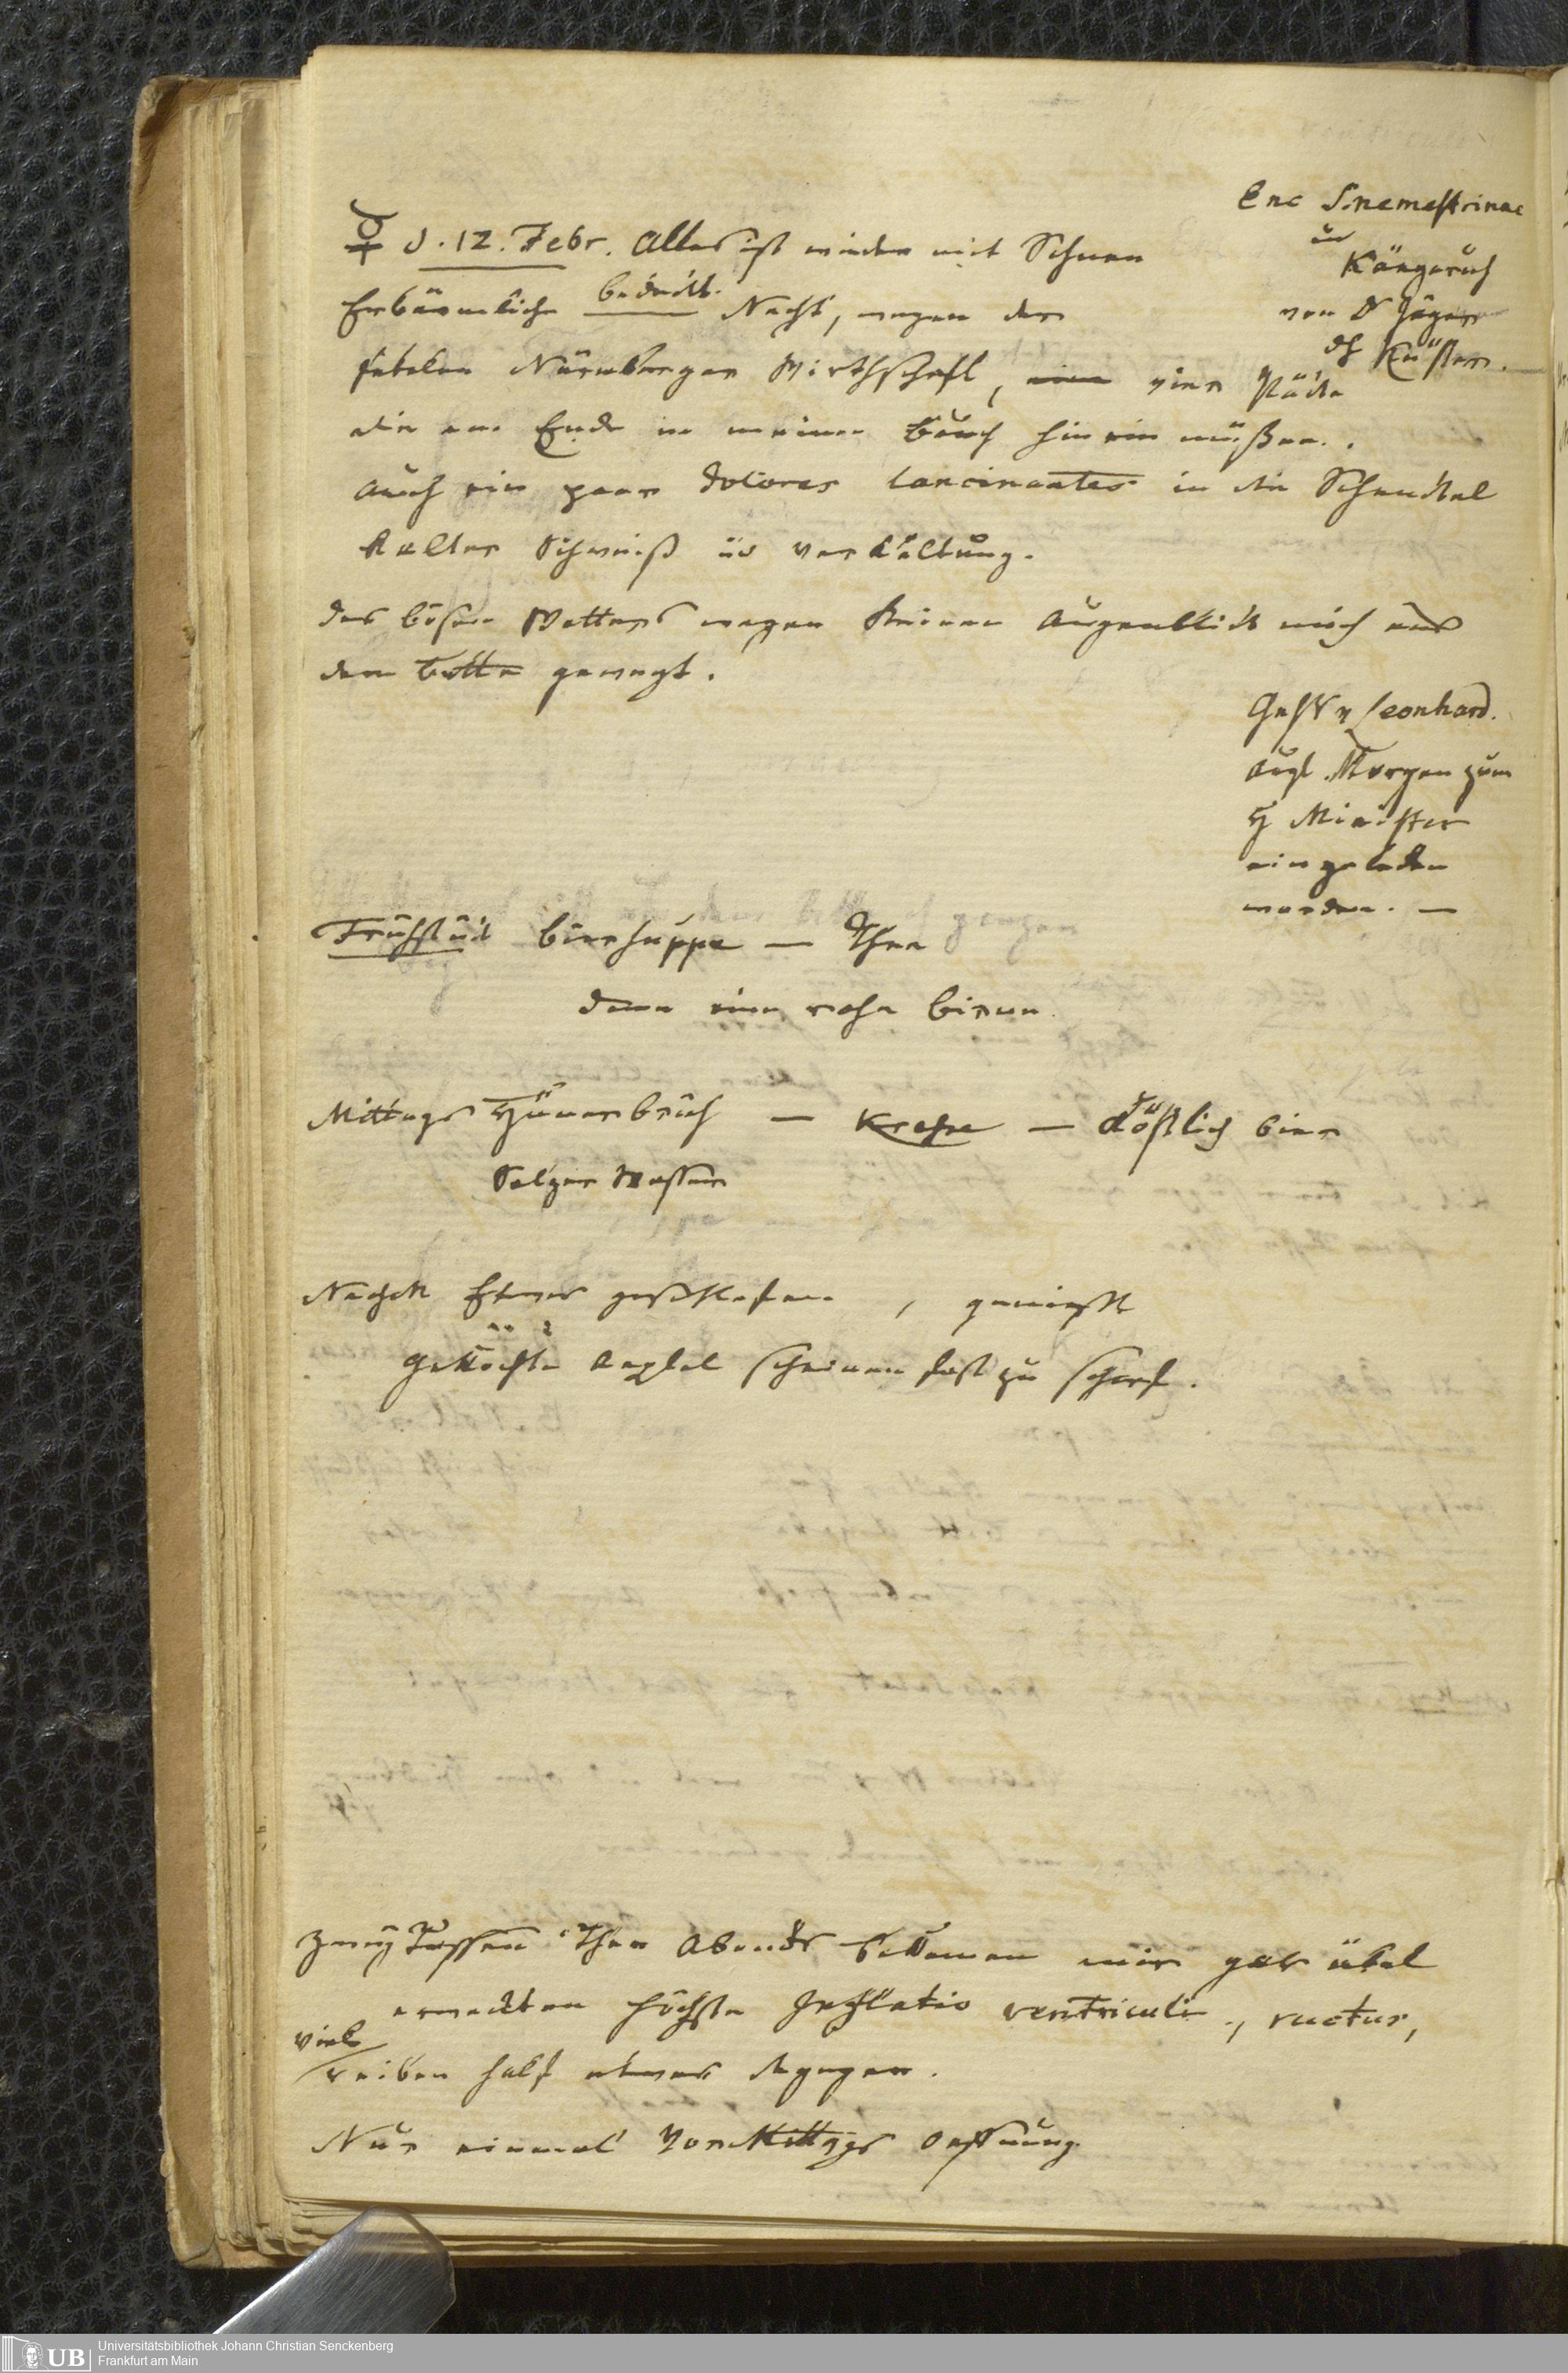 ☿ d. 12. Febr. Alles ist wieder mit Schnee
bedeckt.
Erbärmliche Nacht, wegen der
fatalen Nürnberger Wirthschaft, vier Stücke
die am Ende in meinen Bauch hinein müßen.
Auch ein paar dolores lancinantes in die Schenckel
kalter Schweiß und verkältung.
des bösen Wetters wegen keinen Augenblick mich aus
dem Bette gewagt.
Enc
und
Känguruh
von Dr Jäger
dh Küster.
Geh Leonhard.
auf Morgen zum
H Minister
eingeladen
worden. —
Frühstück biersuppe — Thee
dann eine rohe birne.
Mittags Hünerbrüh — Krepse — köstlich bier
Selzer Wasser
Nachm Etwas geschlafen,
gekochte Aepfel scheinen fast zu scharf.
Zwey Tassen Thee Abends bekamen mir gar übel
erweckten höchste Inflatio ventriculi, ructus,
viel
reiben half etwas dagegen.
Nur einmal VorMittags oeffnung.
UB Universitätsbibliothek Johann Christian Senckenberg
Frankfurt am Main